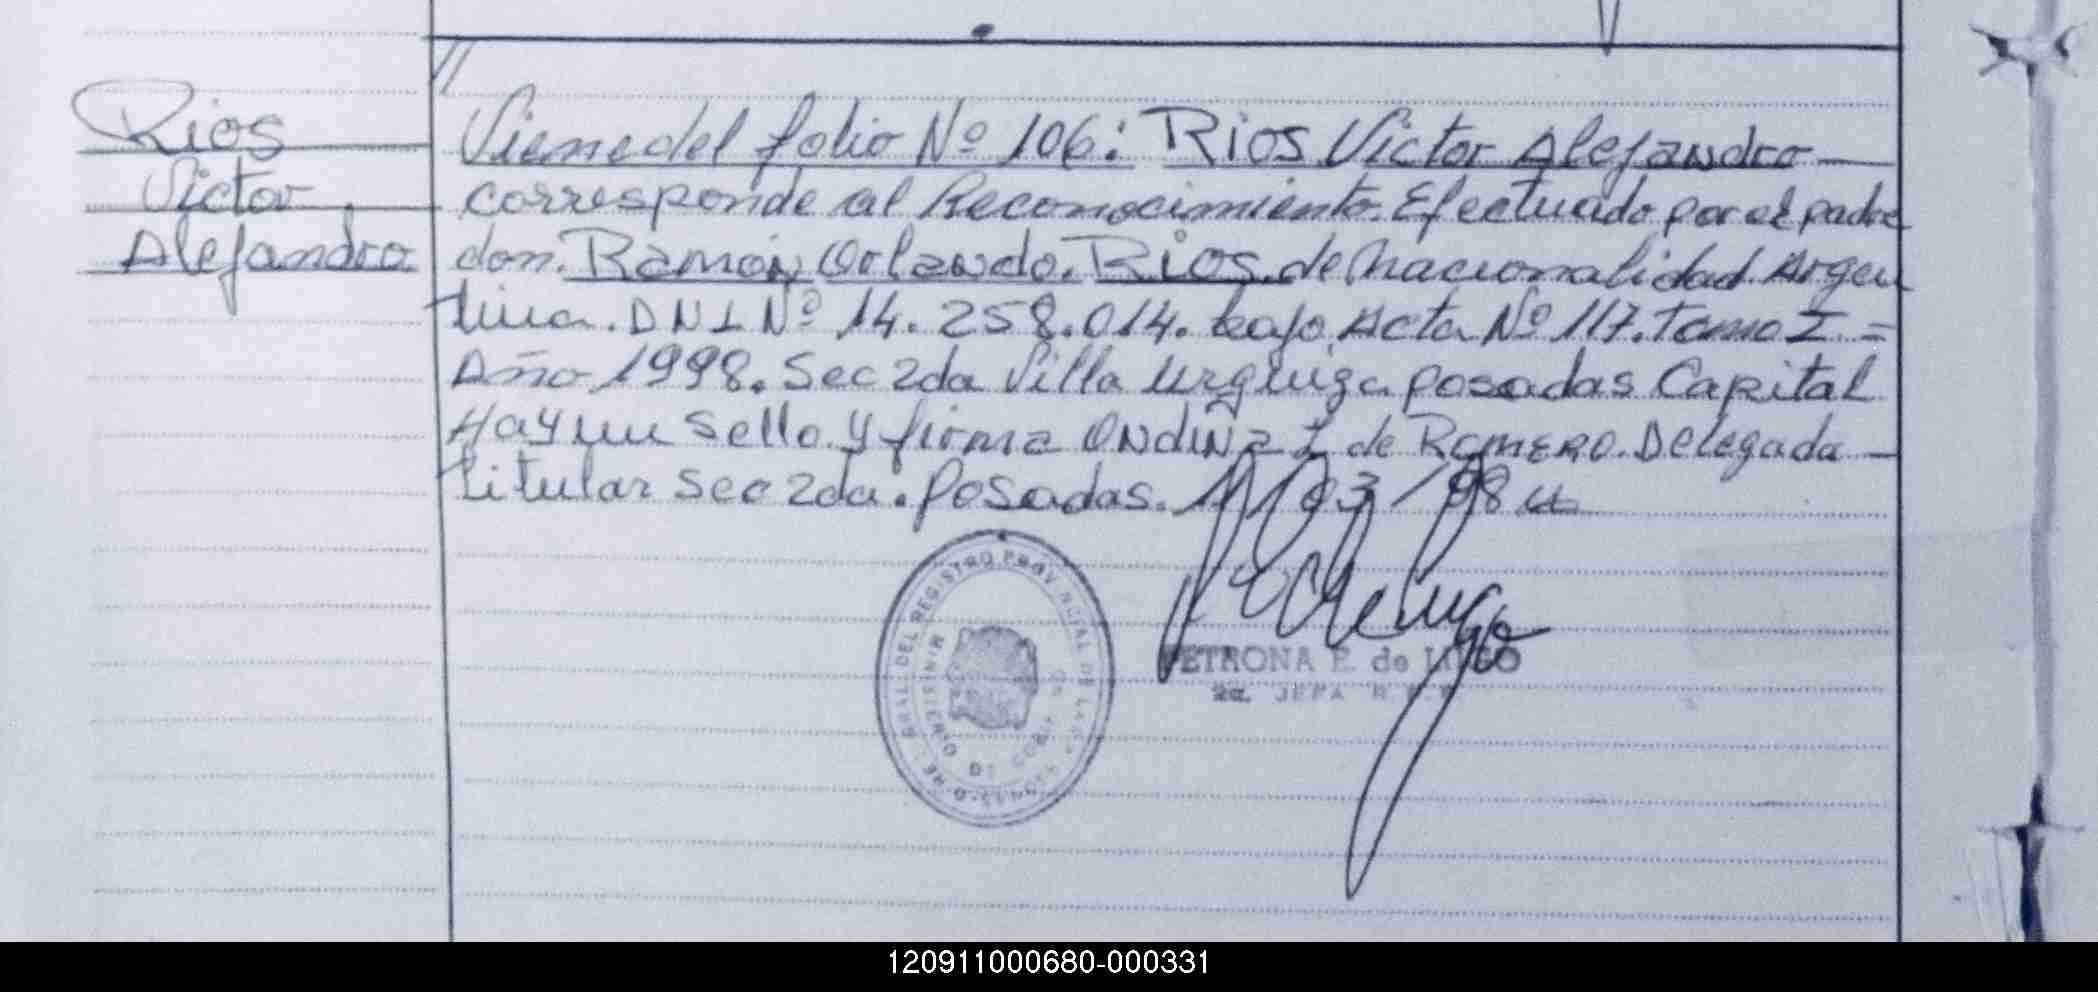 Rios
Victor
Alejandro
Viene del folio Nº 106: Rios Victor Alejandro
corresponde al Reconocimiento. Efectuado por el padre
don. Ramón Orlando. Rios. de nacionalidad. Argen
tina. DNI Nº 14. 258.014. bajo. Acta Nº 117. Tomo I =
Año 1998. Sec 2da Villa Urquiza posadas Capital
Hay un sello y firma Ondina I. de Romero. Delegada
titular sec 2da. Posadas. 11/03/98
REGISTRO PROVINCIAL DE LAS
PETRONA E. de LUGO
2a. JEFA
120911000680-000331